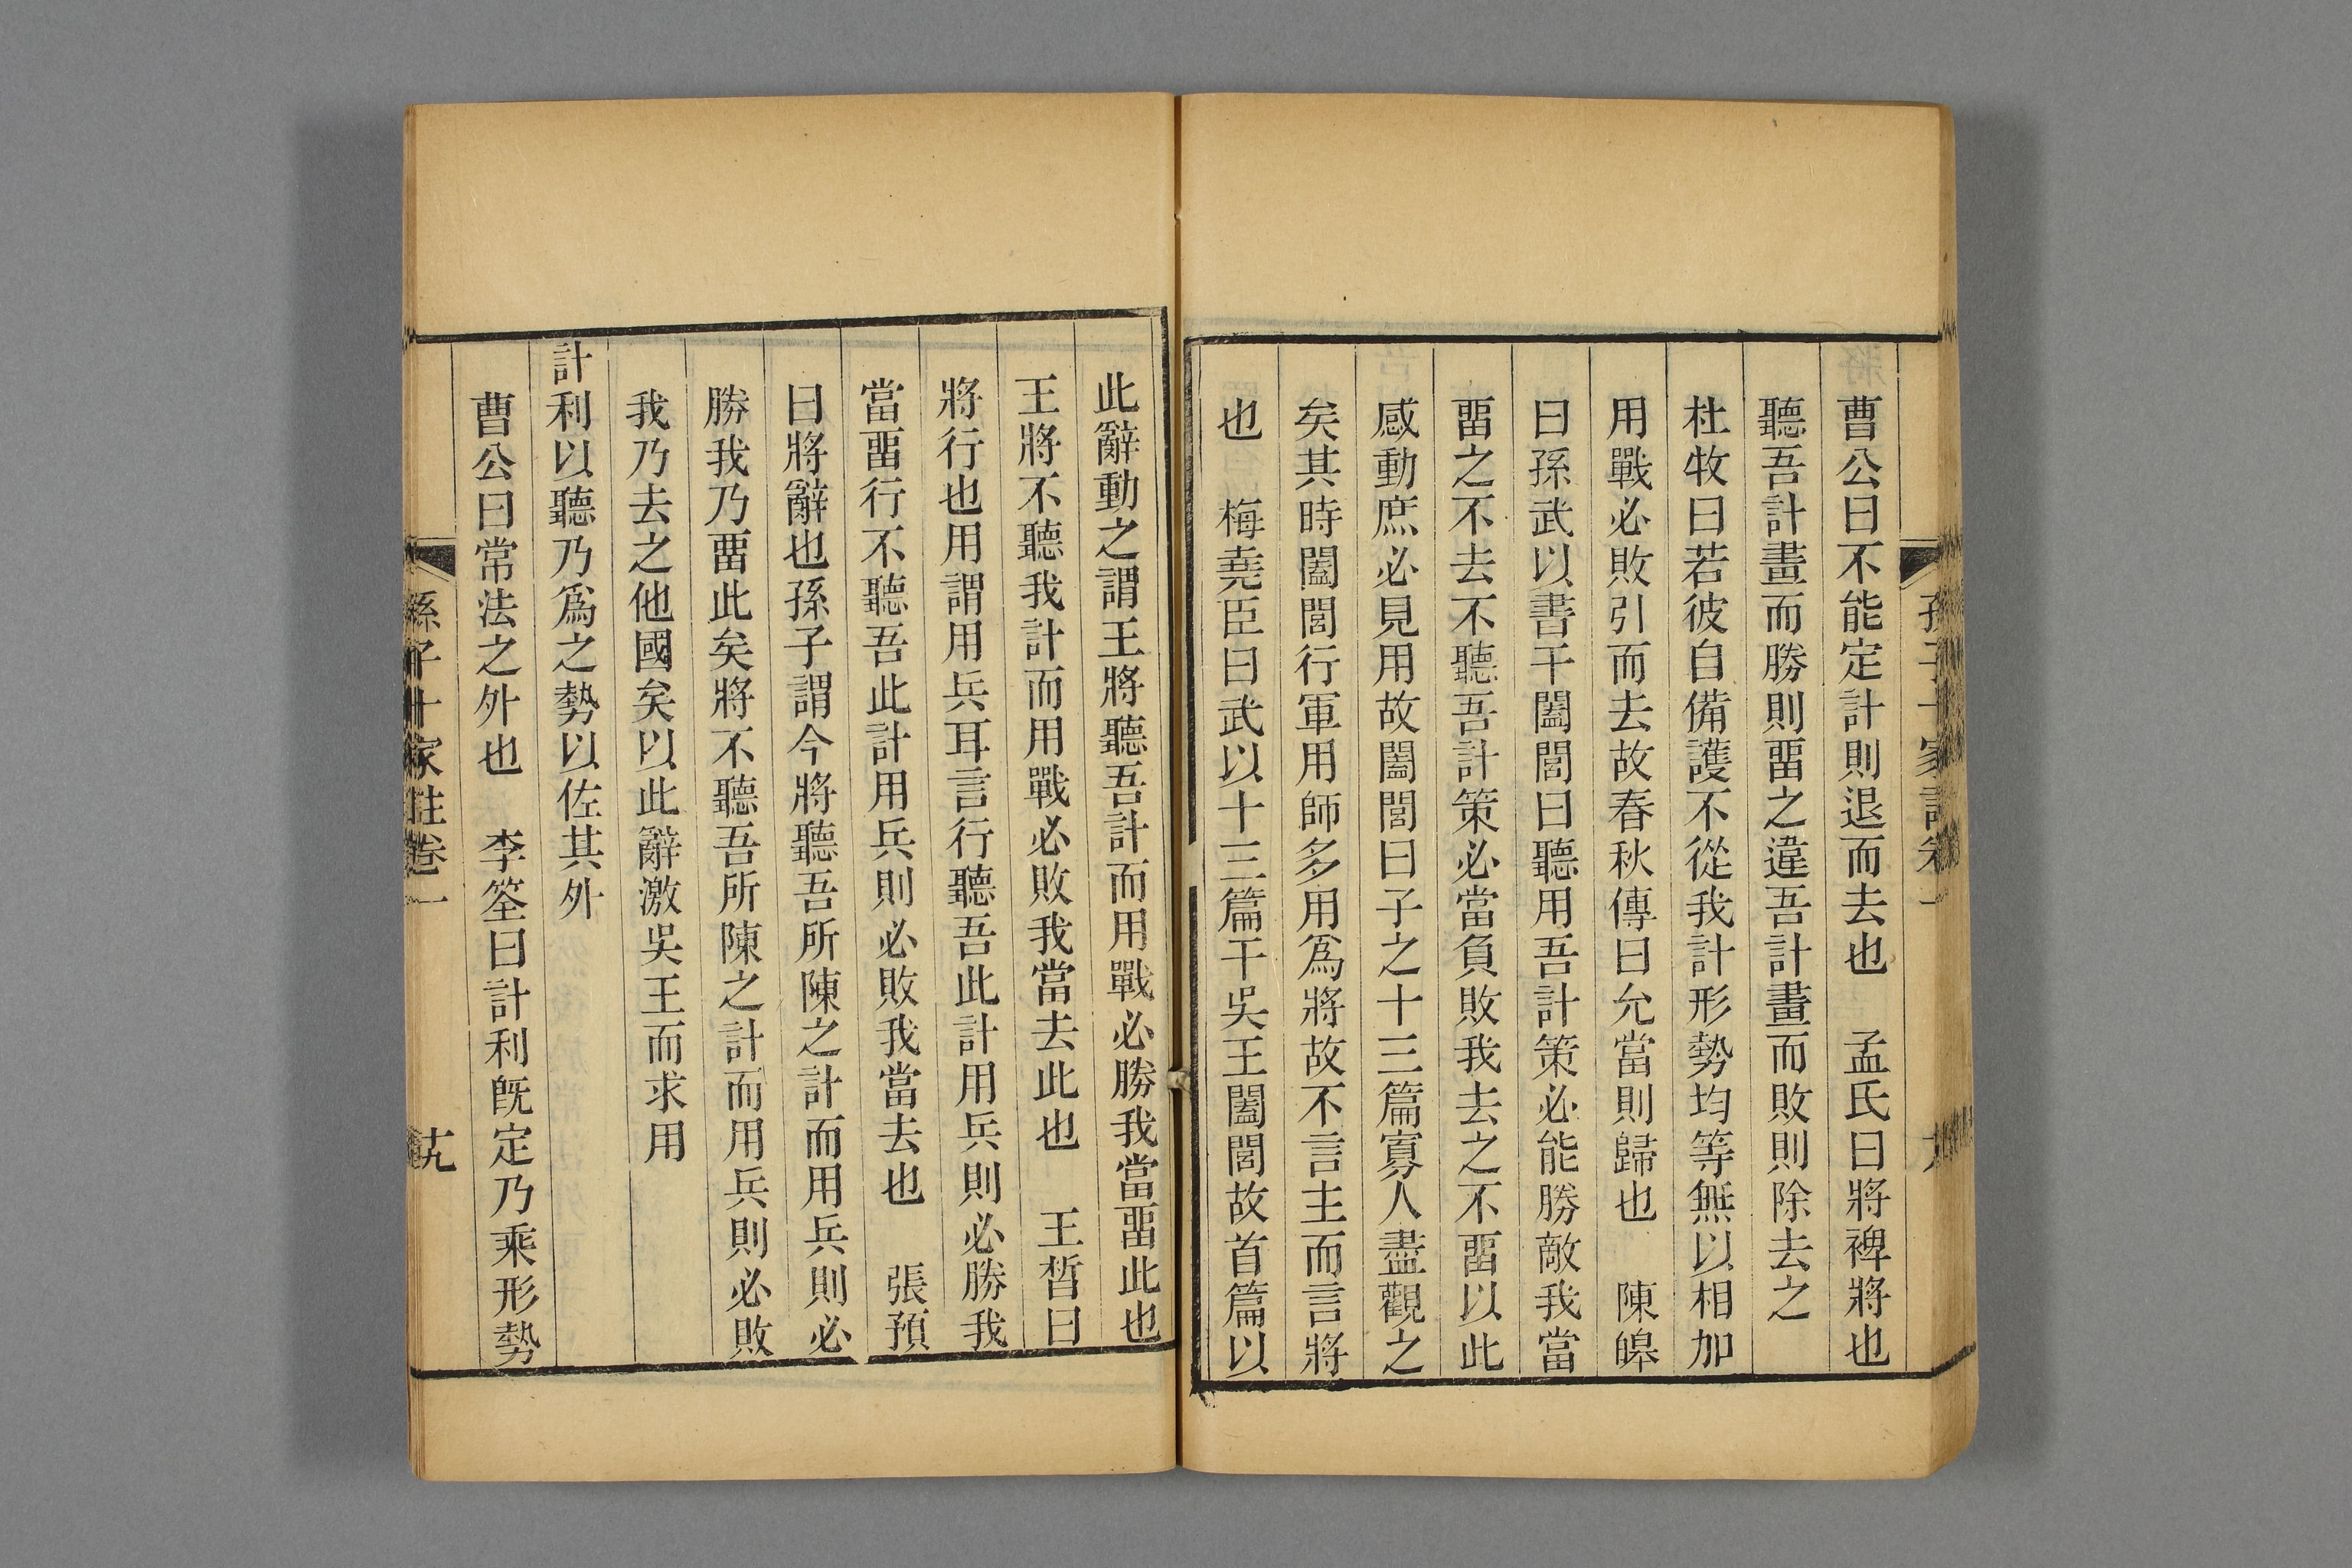 曹公曰不能定計則退而去也　孟氏曰將裨將也
聽吾計畫而勝則畱之違吾計畫而敗則除去之
杜牧曰若彼自備護不從我計形勢均等無以相加
用戰必敗引而去故春秋傳曰允當則歸也　陳皥
曰孫武以書干闔閭曰聽用吾計策必能勝敵我當
畱之不去不聽吾計策必當負敗我去之不畱以此
感動庶必見用故闔閭曰子之十三篇寡人盡觀之
矣其時闔閭行軍用師多用爲將故不言主而言將
也　梅堯臣曰武以十三篇干吳王闔閭故首篇以
此辭動之謂王將聽吾計而用戰必勝我當畱此也
王將不聽我計而用戰必敗我當去此也　王晳曰
將行也用謂用兵耳言行聽吾此計用兵則必勝我
當畱行不聽吾此計用兵則必敗我當去也　張預
曰將辭也孫子謂今將聽吾所陳之計而用兵則必
勝我乃畱此矣將不聽吾所陳之計而用兵則必敗
我乃去之他國矣以此辭激吳王而求用
計利以聽乃爲之勢以佐其外
曹公曰常法之外也　李筌曰計利旣定乃乘形勢
孫子十家註卷一